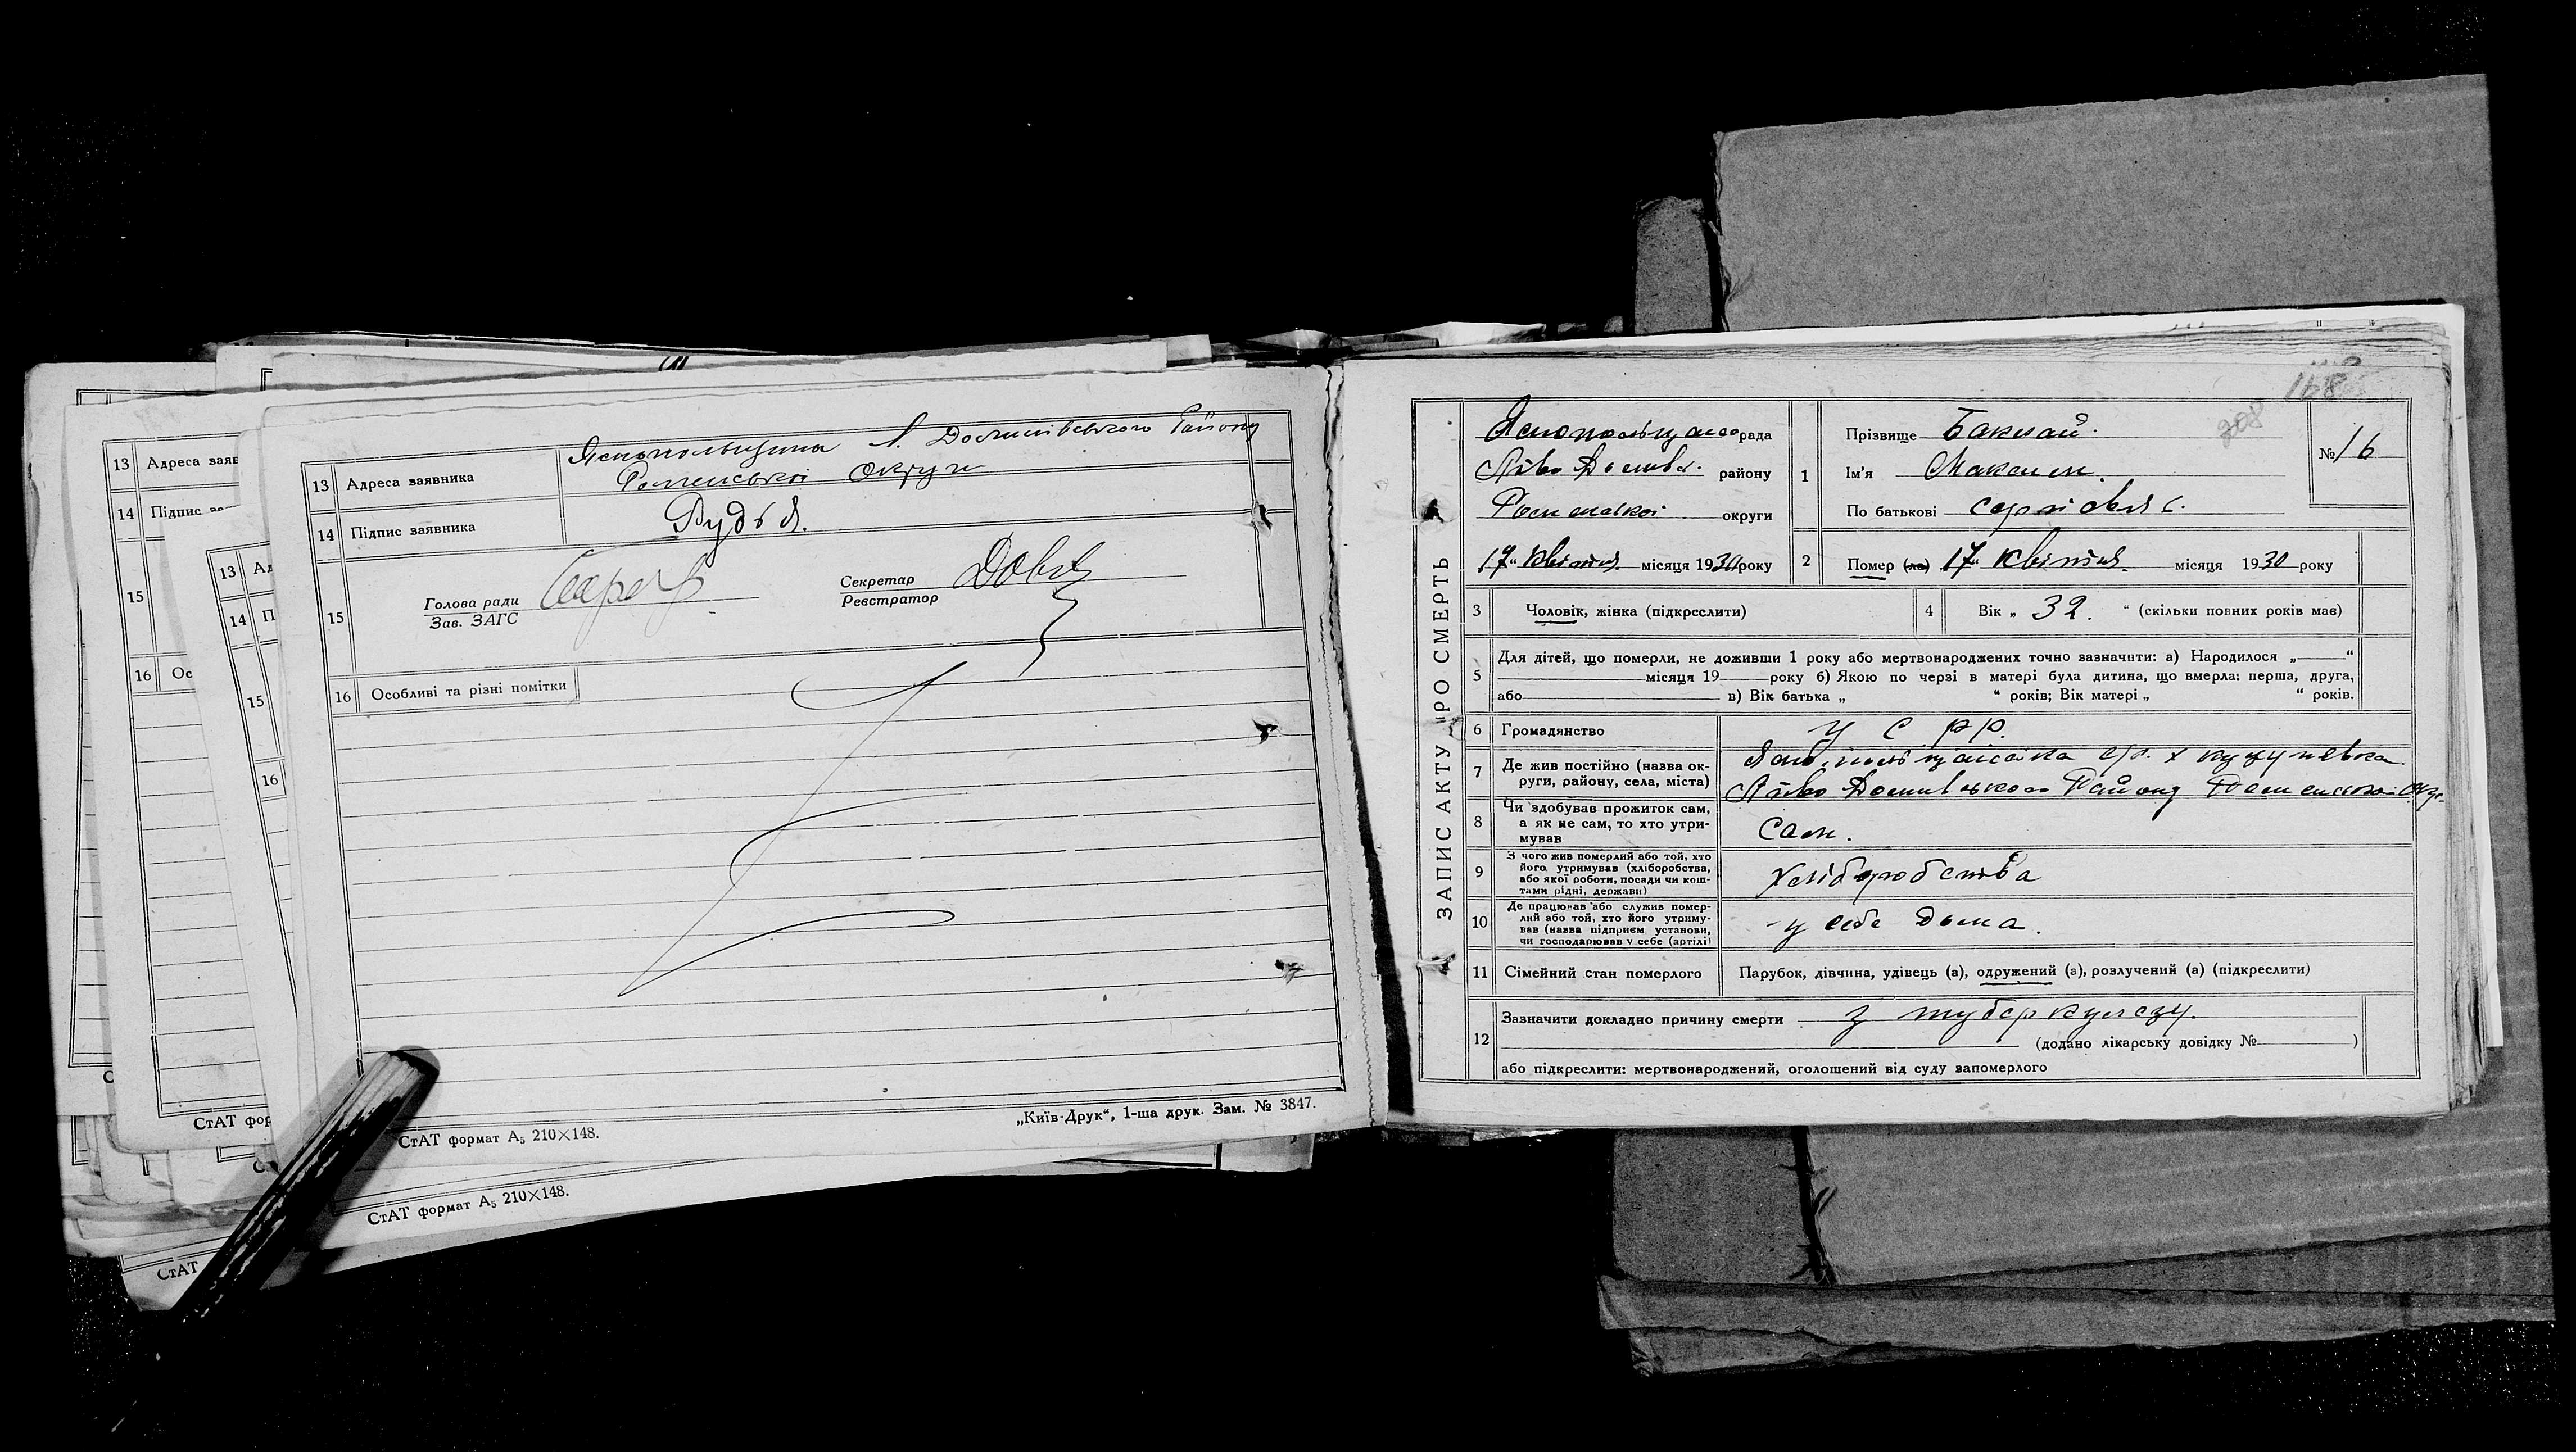 13 Адреса заявника Яснопольщина Л. Долинівського Району
Роменської округи
14 Підпис заявника Рудь Я.
15 Голова ради
Зав. ЗАГС
Секретар
Реєстратор
16 Особливі та різні помітки
СтАТ формат А₅ 210×148.
„Київ-Друк“, 1-ша друк. Зам. № 3847.
СтАТ формат А₅ 210×148.
13 Адреса заяв
14 Підпис
15
16 Ос
СтАТ фор
13 Ад
14 П
15
16
СтАТ
168
208
ЗАПИС АКТУ ПРО СМЕРТЬ
рада
району
Роменської округи
17 „ Квітня місяця 1930 року
1 Прізвище Баклай.
Ім'я Максим
По батькові Сергієвич
№ 16
2 Помер (ла) 17 „ Квітня місяця 1930 року
3 Чоловік, жінка (підкреслити)
4 Вік „ 32. “ (скільки повних років має)
5 Для дітей, що померли, не доживши 1 року або мертвонароджених точно зазначити: а) Народилося „ “
місяця 19 року б) Якою по черзі в матері була дитина, що вмерла: перша, друга,
або в) Вік батька „ “ років; Вік матері „ “ років.
6 Громадянство У С Р Р.
7 Де жив постійно (назва ок-
руги, району, села, міста)
Району Роменської Окр.
8 Чи здобував прожиток сам,
а як не сам, то хто утри-
мував
Сам.
9 З чого жив померлий або той, хто
його утримував (хліборобства,
або якої роботи, посади чи кош-
тами рідні, держави)
Хліборобства
10 Де працював або служив помер-
лий або той, хто його утриму-
вав (назва підприєм установи,
чи господарював у себе (артілі)
у себе дома.
11 Сімейний стан померлого Парубок, дівчина, удівець (а), одружений (а), розлучений (а) (підкреслити)
12 Зазначити докладно причину смерти з туберкулезу.
(додано лікарську довідку № )
або підкреслити: мертвонароджений, оголошений від суду запомерлого